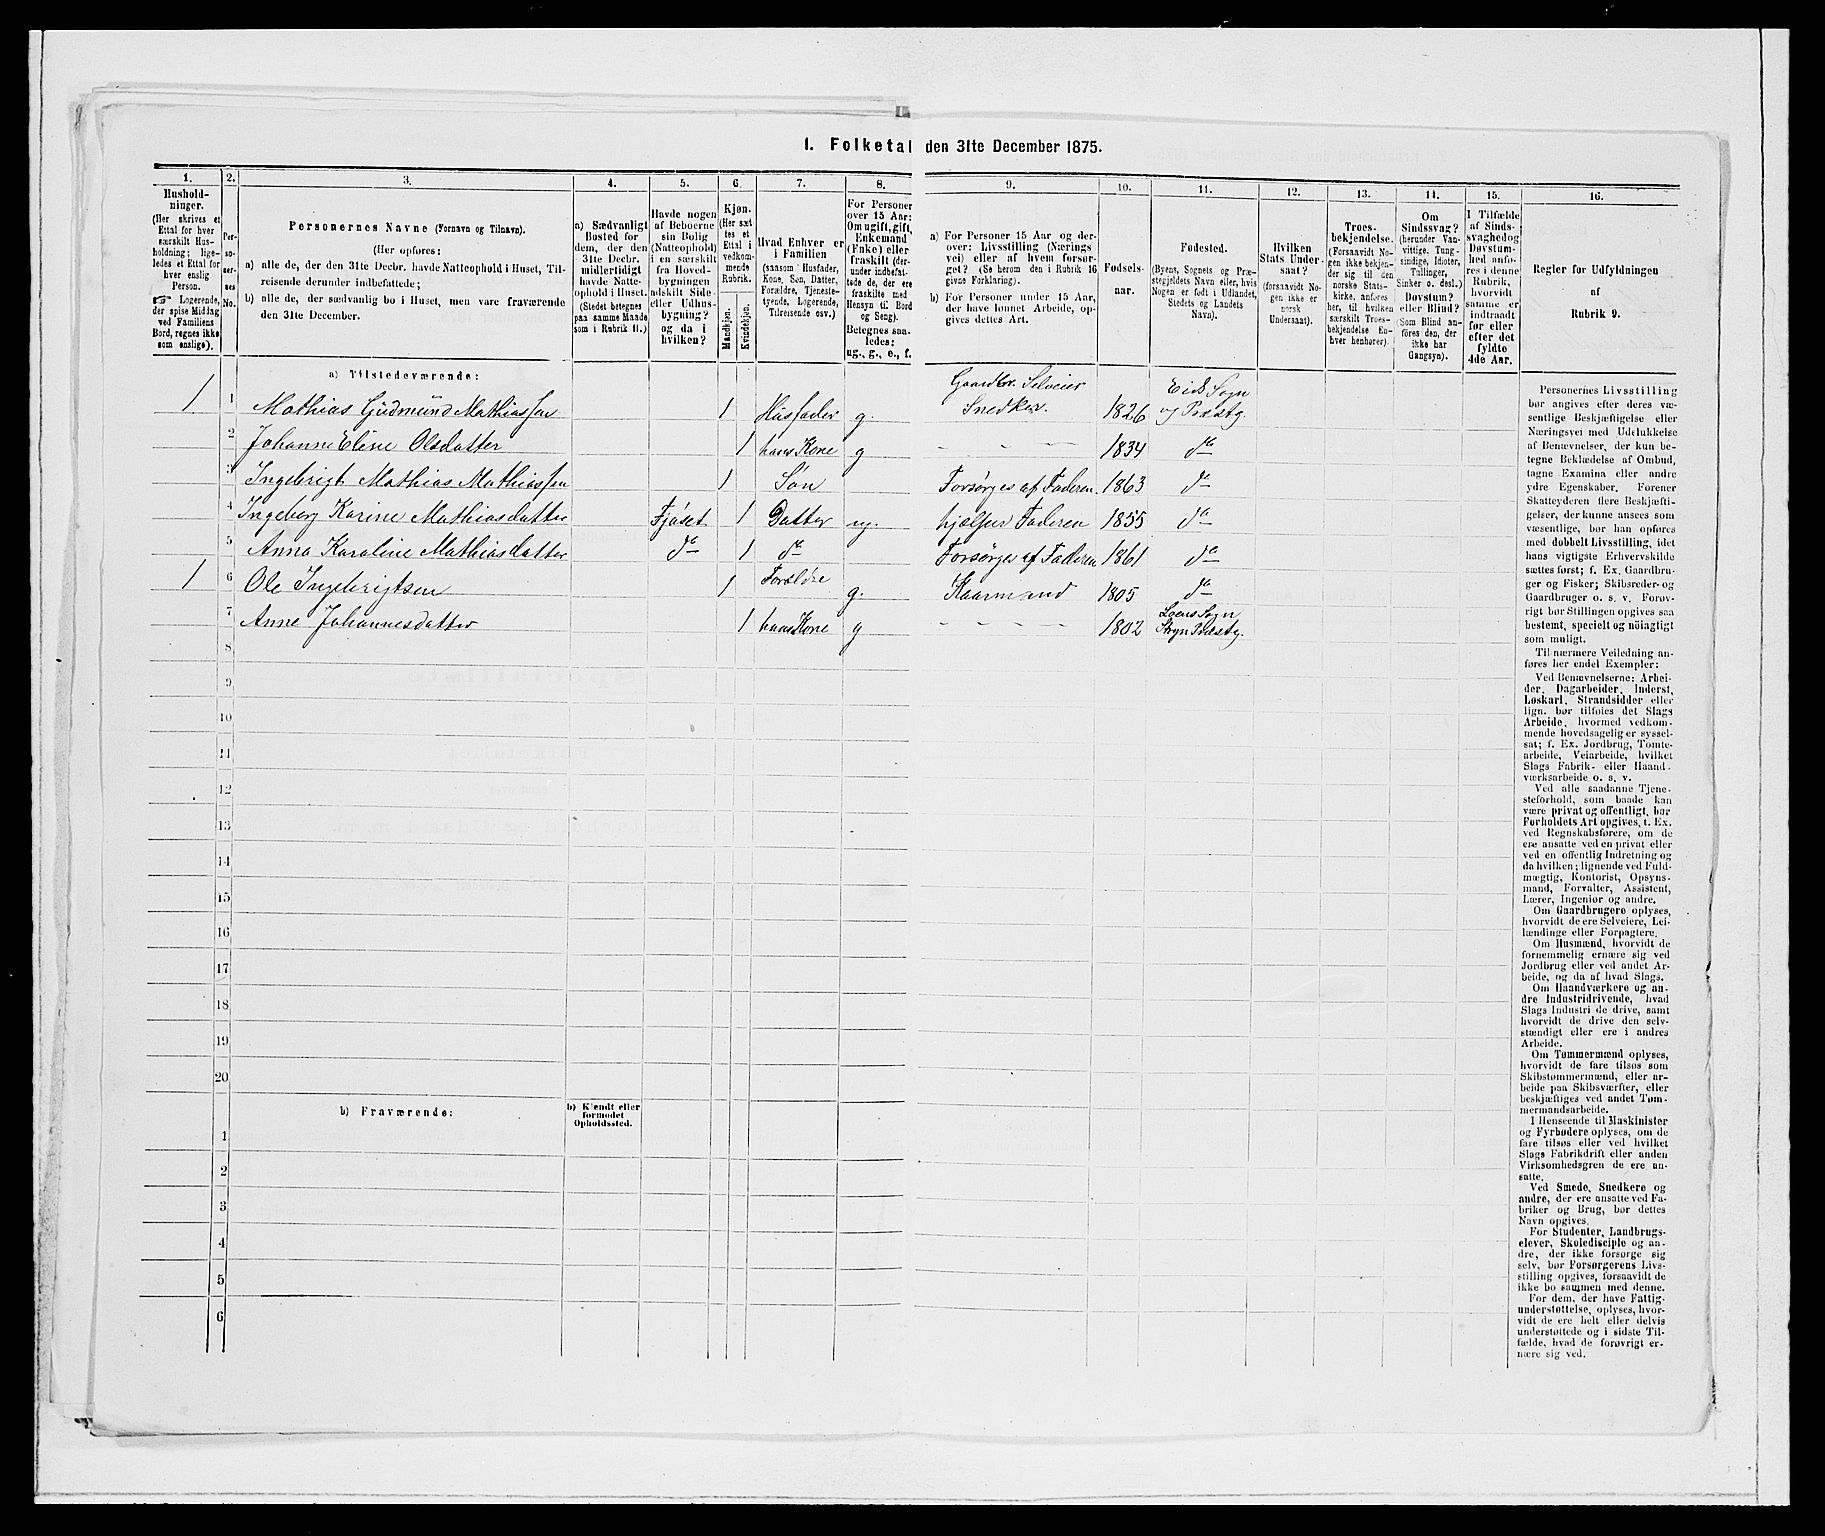 I. Folketal den 31te December 1875.
1.
Hushold-
ninger.
(Her skrives et
Ettal for hver
særskilt Hus-
holdning; lige-
ledes et Ettal for
hver enslig
Person.
Logerende,
der spise Middag
ved Familiens
Bord, regnes ikke
som enslige).
2.
Per-
so-
ner-
nes
No.
3.
Personernes Navne (Fornavn og Tilnavn).
(Her opføres:
a) alle de, der den 31te Decbr. havde Natteophold i Huset, Til-
reisende derunder indbefattede;
b) alle de, der sædvanlig bo i Huset, men vare fraværende
den 31te December.
4.
a) Sædvanligt
Bosted for
dem, der den
31te Decbr.
midlertidigt
havde Natte-
ophold i Huset.
(Stedet betegnes
paa samme Maade
som i Rubrik 11.)
5.
Havde nogen
af Beboerne
sin Bolig
(Natteophold)
i en særskilt
fra Hoved-
bygningen
adskilt Side-
eller Udhus-
bygning?
og da i
hvilken?
6.
Kjøn.
(Her sæt-
tes et
Ettal i
vedkom-
mende
Rubrik.
Mandkjøn.
Kvindekjøn.
7.
Hvad Enhver er
i Familien
(saasom Husfader,
Kone, Søn, Datter,
Forældre, Tjeneste-
tyende, Logerende,
Tilreisende osv.)
8.
For Personer
over 15 Aar:
Om ugift, gift,
Enkemand
(Enke) eller
fraskilt (der-
under indbefat-
tede de, der ere
fraskilte med
Hensyn til Bord
og Seng).
Betegnes saa-
ledes:
ug., g., e., f.
9.
a) For Personer 15 Aar og der-
over: Livsstilling (Nærings-
vei) eller af hvem forsør-
get? (Se herom den i Rubrik 16
givne Forklaring).
b) For Personer under 15 Aar,
der have lønnet Arbeide, op-
gives dettes Art.
10.
Fødsels-
aar.
11.
Fødested.
(Byens, Sognets og Præ-
stegjeldets Navn eller, hvis
Nogen er født i Udlandet,
Stedets og Landets
Navn).
12.
Hvilken
Stats Under-
saat?
(forsaavidt No-
gen ikke er
norsk
Undersaat).
13.
Troes-
bekjendelse.
(Forsaavidt No-
gen ikke bekjen-
der sig til den
norske Stats-
kirke, anføres
her, til hvilken
særskilt Troes-
bekjendelse En-
hver henhører).
14.
Om
Sindssvag?
(herunder Van-
vittige, Tung-
sindige, Idioter,
Tullinger,
Sinker o. desl.)
Døvstum?
eller Blind?
(Som Blind an-
føres den, der
ikke har
Gangsyn).
15.
I Tilfælde
af Sinds-
svaghed og
Døvstum-
hed anfø-
res i denne
Rubrik,
hvorvidt
samme er
indtraadt
før eller
efter det
fyldte
4de Aar.
16.
Regler for Udfyldningen
af
Rubrik 9.
a) Tilstedeværende:
1 1 Mathias Gudmund Mathiassen 1 Husfader g. Gaardbr. Selveier Snedker. 1826 Eids Sogn og Præstg.
2 Johanne Eline Olsdatter 1 hans Kone g - - - 1834 do
3 Ingebrigt Mathias Mathiassen 1 Søn Forsørges af Faderen. 1863 do
4 Ingeborg Karine Mathiasdatter Fjøset 1 Datter ug. hjælper Faderen 1855 do
5 Anna Karoline Mathiasdatter do 1 do Forsørges af Faderen 1861 do
1 6 Ole Ingebrigtsen 1 Forældre g. Kaarmand 1805 do
7 Anne Johannesdatter 1 hans Kone g - - - - 1802 Loens Sogn Stryn Præstg.
8
9
10
11
12
13
14
15
16
17
18
19
20
b) Fraværende:
b) Kjendt eller
formodet
Opholdssted.
1
2
3
4
5
6
Personernes Livsstilling
bør angives efter deres væ-
sentlige Beskjæftigelse eller
Næringsvei med Udelukkelse
af Benævnelser, der kun be-
tegne Beklædelse af Ombud,
tagne Examina eller andre
ydre Egenskaber. Forener
Skatteyderen flere Beskjæfti-
gelser, der kunne ansees som
væsentlige, bør han opføres
med dobbelt Livsstilling, idet
hans vigtigste Erhvervskilde
sættes først; f. Ex. Gaardbru-
ger og Fisker; Skibsreder og
Gaardbruger o. s. v. Forøv-
rigt bør Stillingen opgives saa
bestemt, specielt og nøiagtigt
som muligt.
Til nærmere Veiledning an-
føres her endel Exempler:
Ved Benævnelserne: Arbei-
der, Dagarbeider, Inderst,
Løskarl, Strandsidder eller
lign. bør tilføies det Slags
Arbeide, hvormed vedkom-
mende hovedsagelig er syssel-
sat; f. Ex. Jordbrug, Tomte-
arbeide, Veiarbeide, hvilket
Slags Fabrik- eller Haand-
værksarbeide o. s. v.
Ved alle saadanne Tjene-
steforhold, som baade kan
være privat og offentligt, bør
Forholdets Art opgives, t. Ex.
ved Regnskabsførere, om de
ere ansatte ved en privat eller
ved en offentlig Indretning og
da hvilken; lignende ved Fuld-
mægtig, Kontorist, Opsyns-
mand, Forvalter, Assistent,
Lærer, Ingeniør og andre.
Om Gaardbrugere oplyses,
hvorvidt de ere Selveiere, Lei-
lændinge eller Forpagtere.
Om Husmænd, hvorvidt de
fornemmelig ernære sig ved
Jordbrug eller ved andet Ar-
beide, og da af hvad Slags.
Om Haandværkere og an-
dre Industridrivende, hvad
Slags Industri de drive, samt
hvorvidt de drive den selv-
stændigt eller ere i andres
Arbeide.
Om Tømmermænd oplyses,
hvorvidt de fare tilsøs som
Skibstømmermænd, eller ar-
beide paa Skibsværfter, eller
beskjæftiges ved andet Tøm-
mermandsarbeide.
I Henseende til Maskinister
og Fyrbødere oplyses, om de
fare tilsøs eller ved hvilket
Slags Fabrikdrift eller anden
Virksomhedsgren de ere an-
satte.
Ved Smede, Snedkere og
andre, der ere ansatte ved Fa-
briker og Brug, bør dettes
Navn opgives.
For Studenter, Landbrugs-
elever, Skoledisciple og an-
dre, der ikke forsørge sig
selv, bør Forsørgerens Livs-
stilling opgives, forsaavidt de
ikke bo sammen med denne.
For dem, der have Fattig-
understøttelse, oplyses, hvor-
vidt de ere helt eller delvis
understøttede og i sidste Til-
fælde, hvad de forøvrigt er-
nære sig ved.